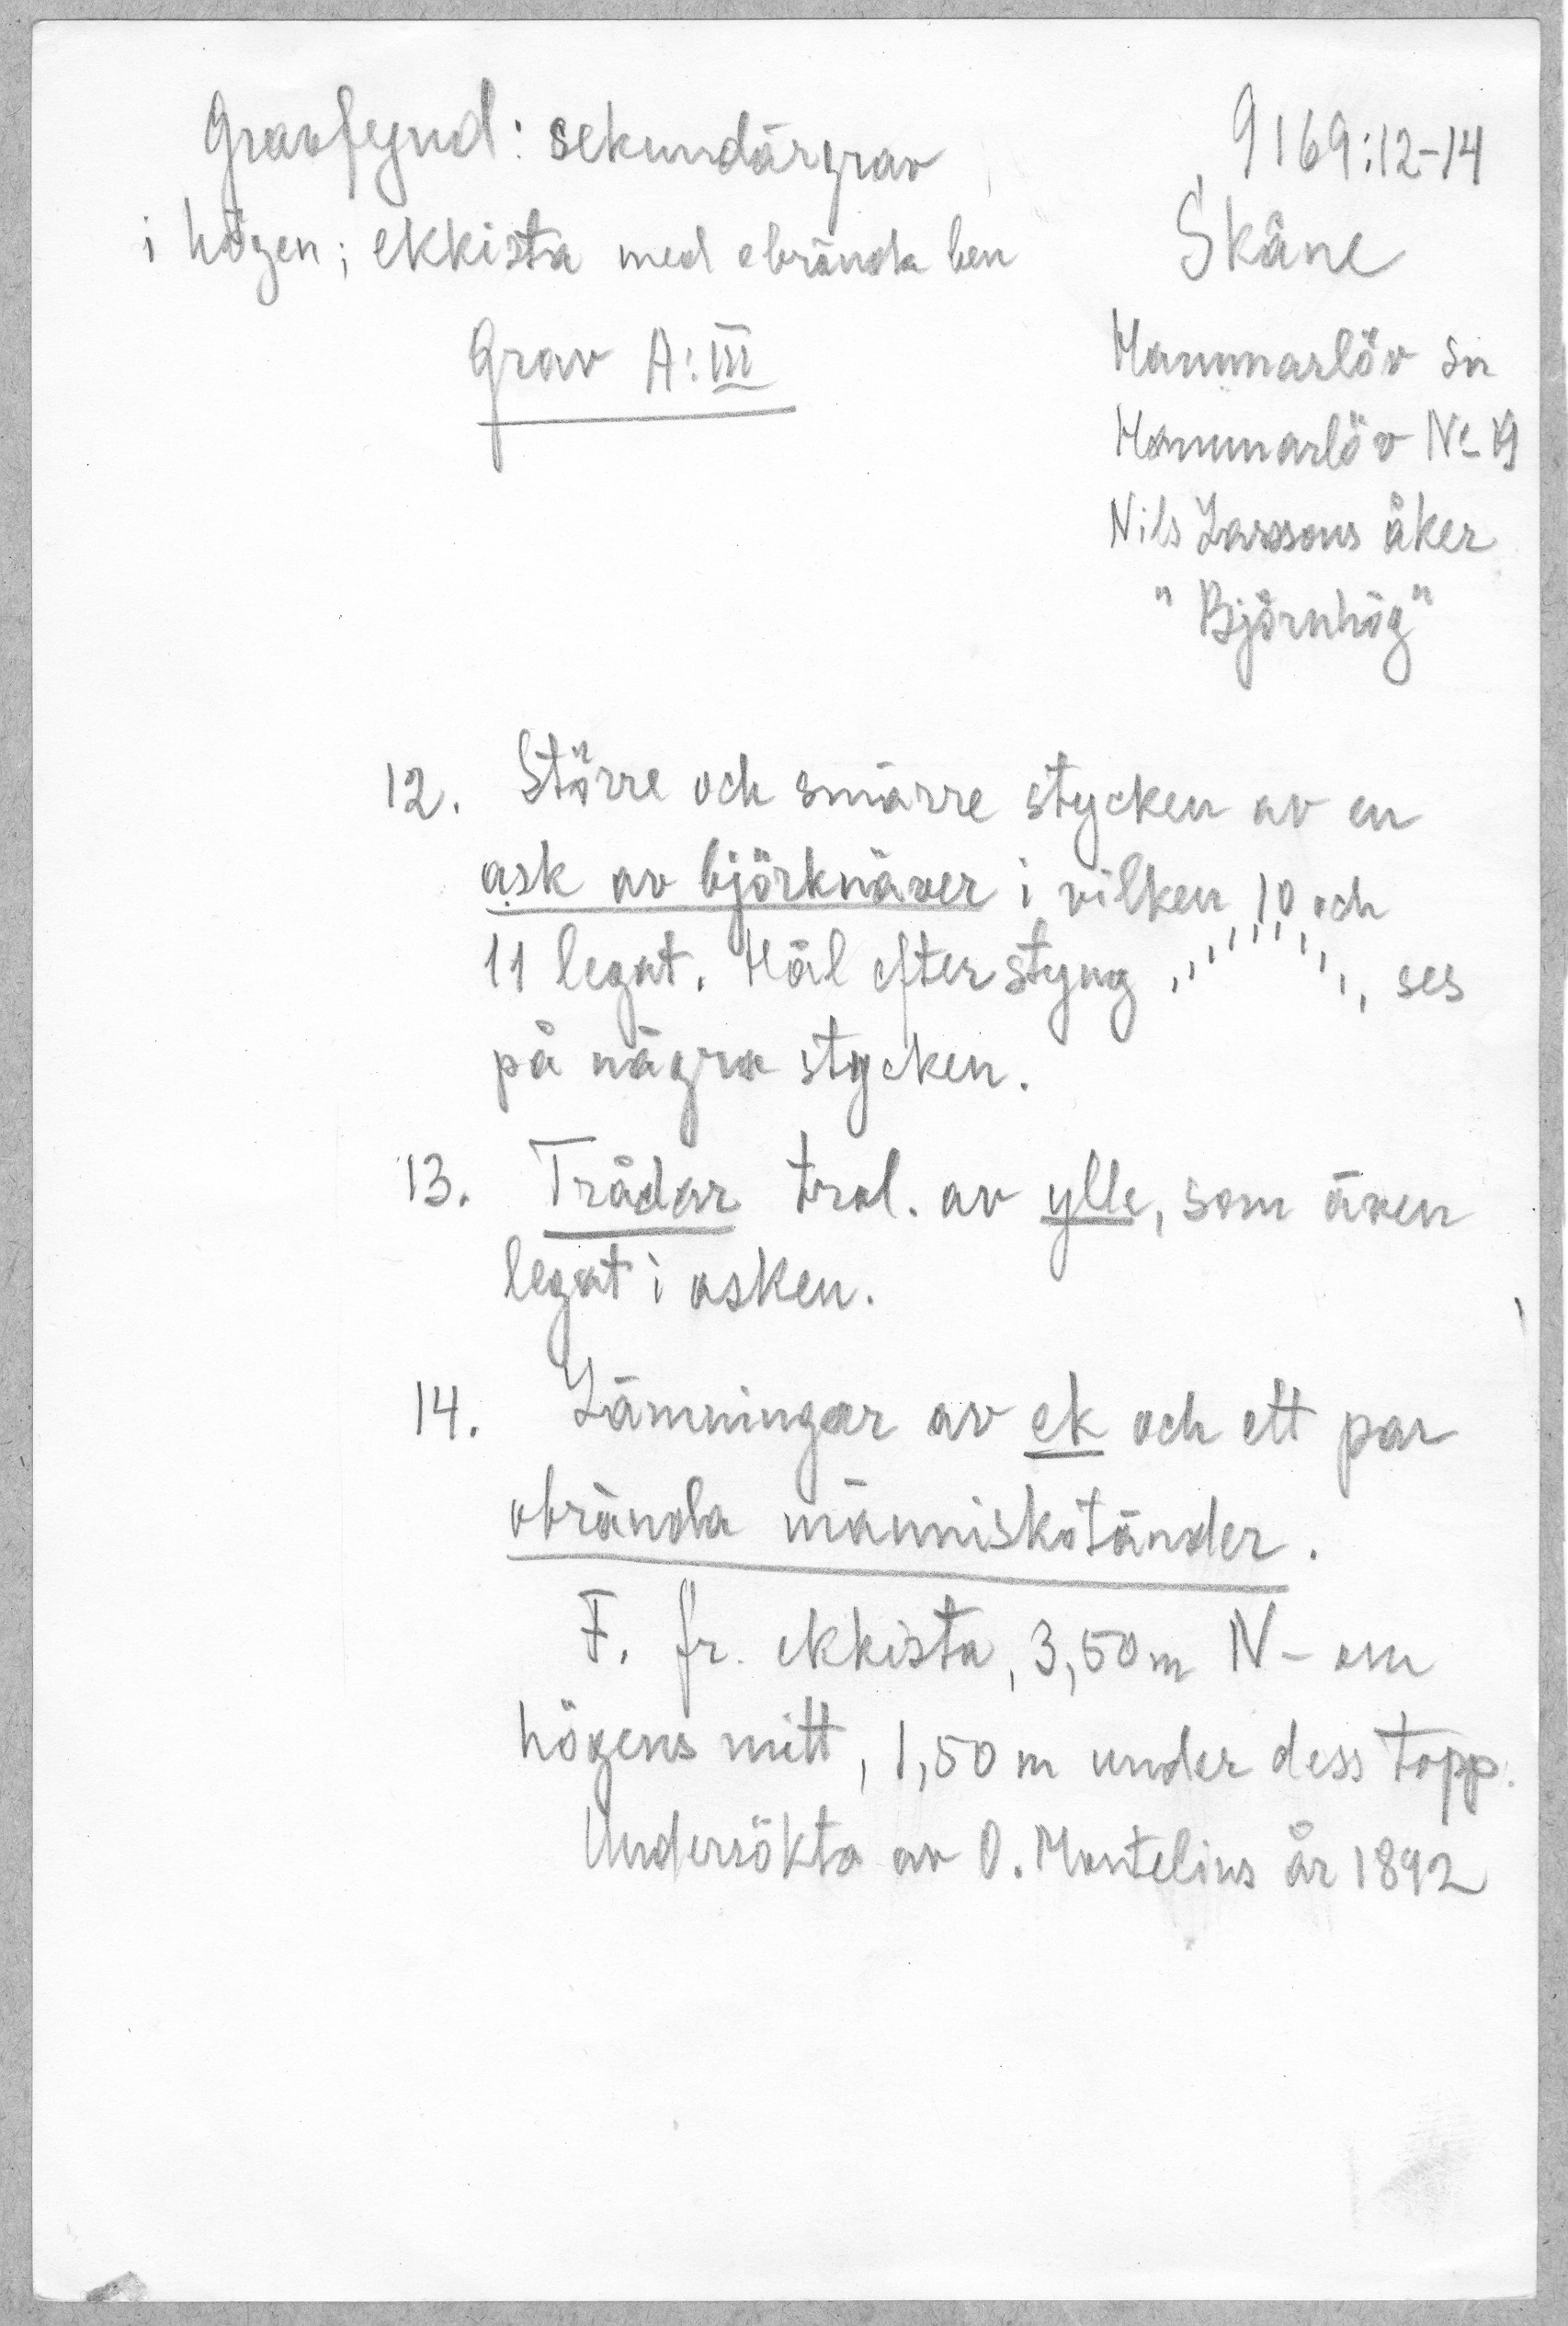 Gravfynd: sekundärgrav
i högen; ekkista med obrända ben
Grav A:III
9169:12-14
Skåne
Hammarlöv sn
Hammarlöv No 19
Nils Larssons åker
"Björnhög"
12. Större och smärre stycken av en
ask av björknäver i vilken 10 och
11 legat. Hål efter styng ses
på några stycken.
13. Trådar trol. av ylle, som även
legat i asken.
14. Lämningar av ek och ett par
obrända människotänder.
F. fr. ekkista, 3,50 m N - om
högens mitt, 1,50 m under dess topp.
Undersökta av O. Montelius år 1892